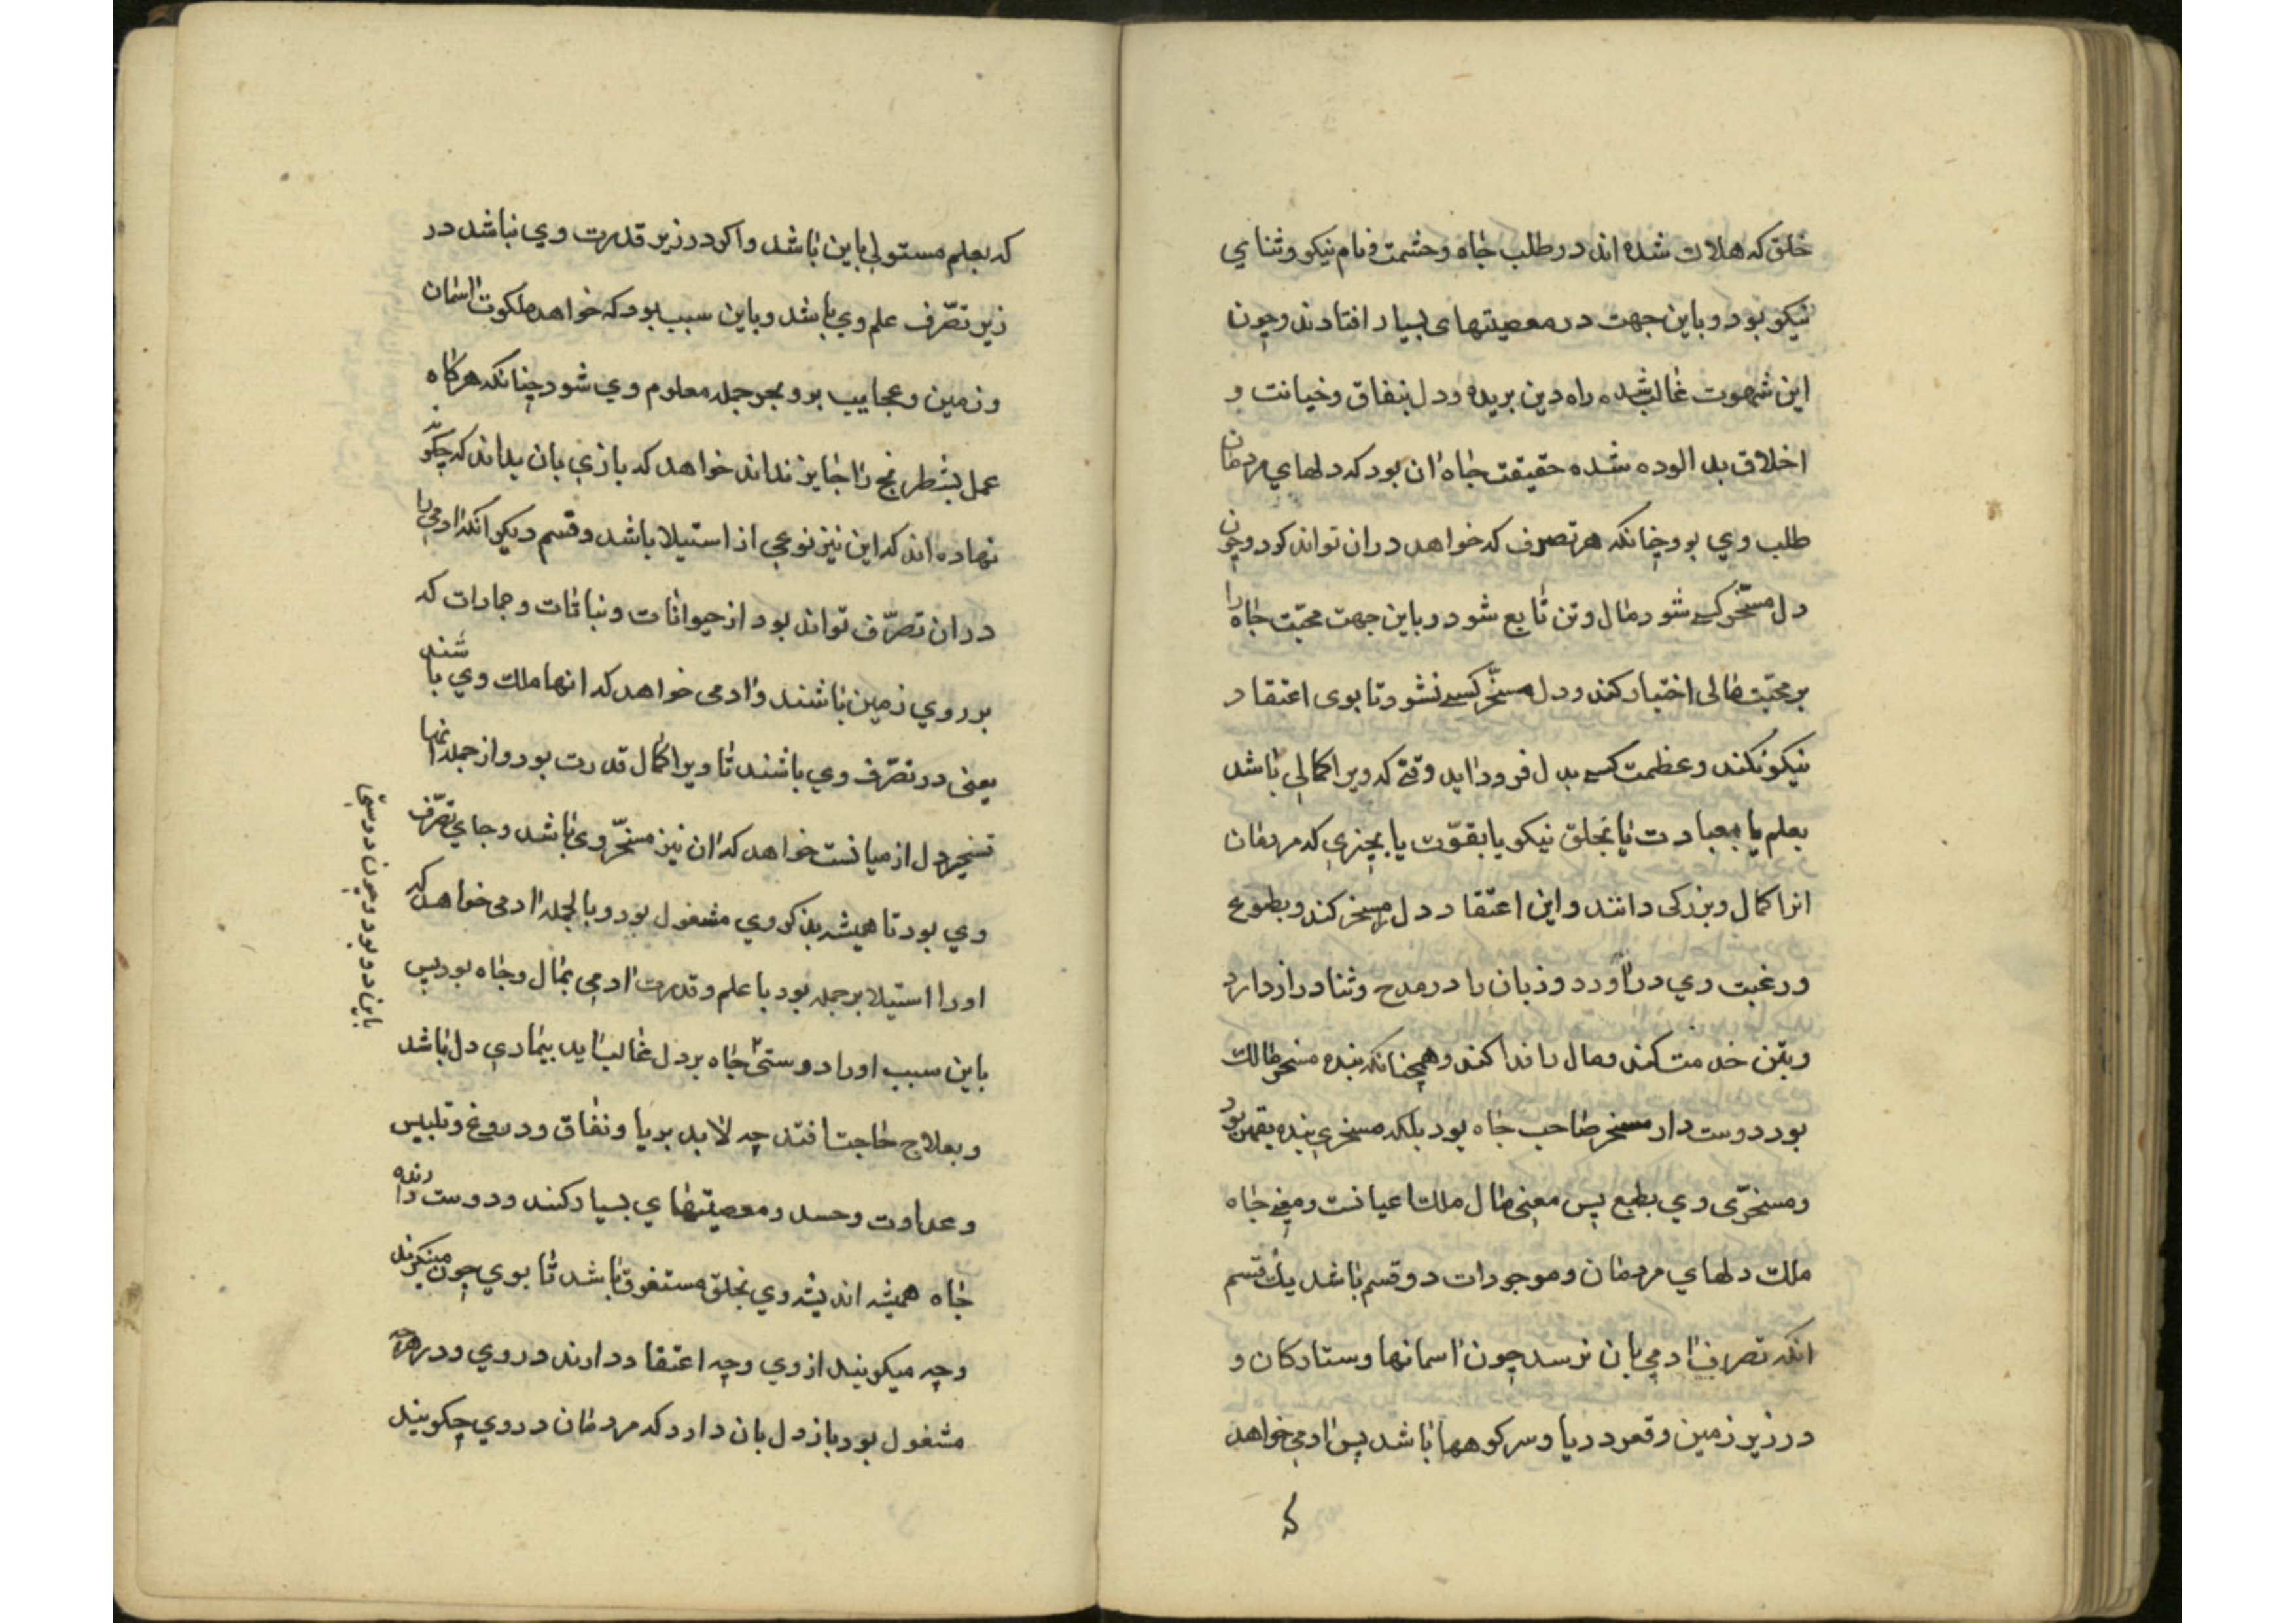 خلق که هلاک شده اند در طلب جاه و حشمت و نام نیکو و ثنای
نیکو بود و باین جهت در معصیتهای بسیار افتادند و چون
این شهوت غالب شده راه دین بریده و دل بنفاق و خیانت و
اخلاق بد الوده شده حقیقت جاه ان بود که دلهای مردمان
طلب وی بود چنانکه هر تصرف که خواهد در ان تواند کرد و چون
دل مسخّر کسی شود مال و تن تابع شود و باین جهت محبّت جاه را
بر محبّت مالی اختیار کنند و دل مسخّر کسی نشود تا بوی اعتقاد
نیکو نکند و عظمت کسی بدل فرود اید وقتی که ویرا کمالی باشد
بعلم یا بعبادت یا بخلق نیکو یا بقوّت یا بچیزی که مردمان
انرا کمال و بزرکی دانند و این اعتقاد دل را مسخر کند و بطوع
و رغبت وی در اورد و زبان را در مدح و ثنا دراز دارد
و بتن خدمت کند و مال را فدا کند و همچنانکه بنده مسخر مالک
بود دوست دار مسخر صاحب جاه بود بلکه مسخری بنده بقهر بود
و مسخرّی وی بطبع پس معنی مال ملک اعیانست و معنی جاه
ملک دلهای مردمان و موجودات دو قسم باشد یک قسم
انکه تصرف ادمی بان نرسد چون اسمانها و ستارکان و
در زیر زمین و قعر دریا و سر کوهها باشد پس ادمی خواهد
که
که بعلم مستولی باین باشد و اکر در زیر قدرت وی نباشد در
زیر تصّرف علم وی باشد و باین سبب بود که خواهد ملکوت اسمان
و زمین و عجایب بر و بحر جمله معلوم وی شود چنانکه هرکاه
عمل بشطرنج را جایز نداند خواهد که بازی بان بداند که چکونه
نهاده اند که این نیز نوعی از استیلا باشد و قسم دیکر انکه ادمی را
در ان تصرّف تواند بود از حیوانات و نباتات و جمادات که
بر روی زمین باشند و ادمی خواهد که انها ملک وی باشند
یعنی در تصّرف وی باشند تا ویرا کمال قدرت بود و از جمله انها
تسخیر دل ادمیانست خواهد که ان نیز مسخّر وی باشد و جای تصّرف
وی بود تا همیشه بذکر وی مشغول بود و بالجمله ادمی خواهد که
او را استیلا بر جمله بود با علم و قدرت ادمی بمال و جاه بود پس
باین سبب او را دوستی جاه بر دل غالب اید بیماری دل باشد
و بعلاج حاجت افتد چه لابد بریا و نفاق و دروغ و تلبیس
و عداوت و حسد و معصیتهای بسیار کنند و دوست دارنده
جاه همیشه اندیشه وی بخلق مستغرق باشد تا بوی چون مینکرند
و چه میکویند از وی و چه اعتقاد دارند در وی و در هرچه
مشغول بود باز دل بان دارد که مردمان در وی چکویند
باین دو بود و چون دوستی